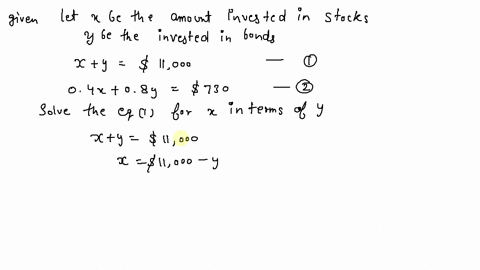 given let x be the amount invested in stocks
y be the invested in bonds
x+y = $ 11,000 — ①
0.4x+0.8y = $730 — ②
Solve the eq(1) for x in terms of y
x+y = $ 11,000
x = $11,000 - y